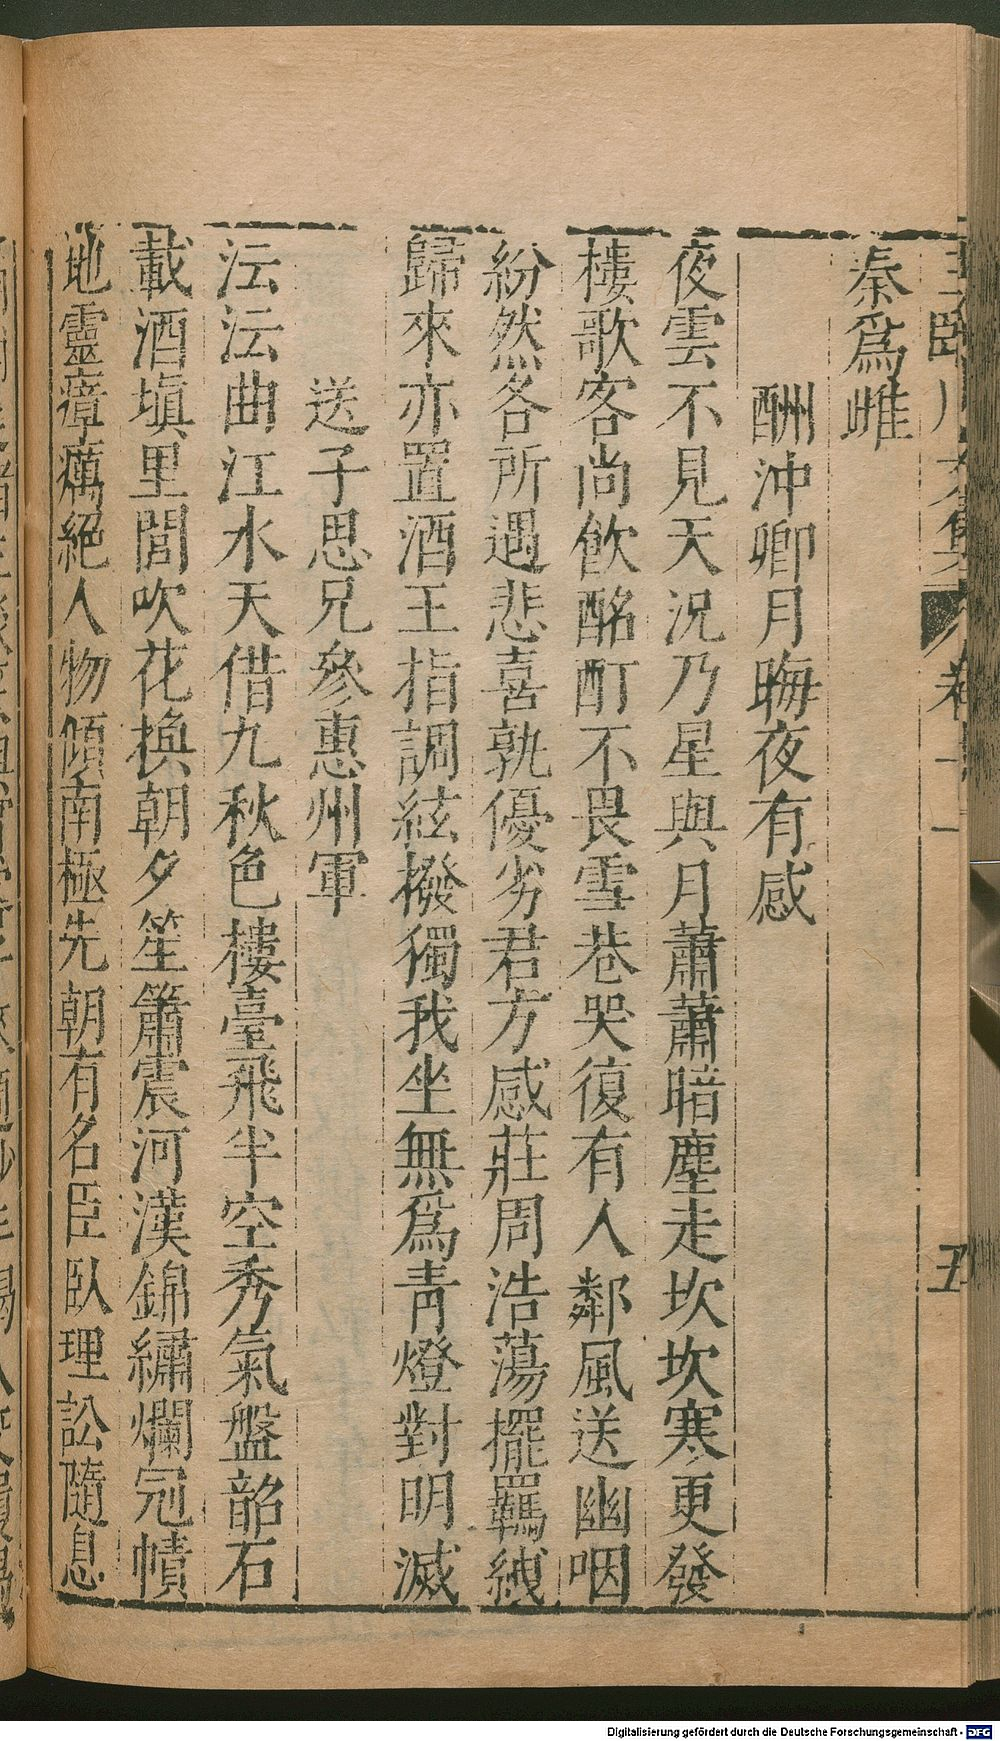 秦爲雌
酬沖卿月晦夜有感
夜雲不見天況乃星與月蕭蕭暗塵走坎坎寒更發
樓歌客尚飲酩酊不畏雪巷哭復有人鄰風送幽咽
紛然各所遇悲喜孰優劣君方感莊周浩蕩擺羈紲
歸來亦置酒玉指調絃撥獨我坐無爲青燈對明滅
送子思兄參惠州軍
沄沄曲江水天借九秋色樓臺飛半空秀氣盤韶石
載酒塡里閭吹花換朝夕笙簫震河漢錦繡爛冠幘
地靈瘴癘絕人物傾南極先朝有名臣臥理訟隨息
五
Digitalisierung gefördert durch die Deutsche Forschungsgemeinschaft - DFG